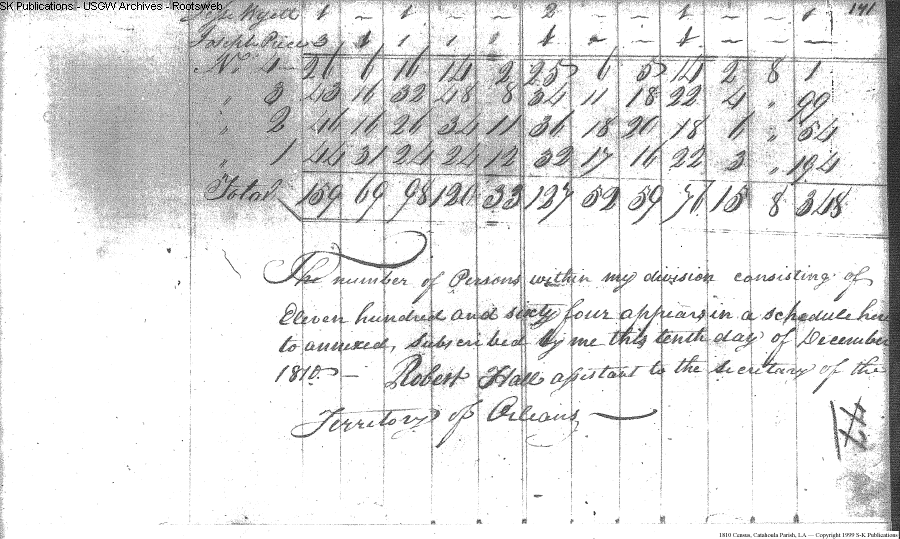 SK Publications - USGW Archives - Rootsweb
Wyett 1 – 1 – – 2 – – 1 – – 1 141
Joseph 3 1 1 1 1 – – 1 – – –
No. 4 26 6 16 14 2 25 6 5 14 2 8 1
" 3 43 16 32 48 8 34 11 18 22 4 " 99
" 2 46 16 26 34 11 36 18 20 18 6 " 54
" 1 44 31 24 24 12 32 17 16 22 3 " 194
Total 159 69 98 120 33 127 52 59 76 15 8 348
The number of Persons within my division consisting of
Eleven hundred and sixty four appears in a schedule here
to annexed, subscribed by me this tenth day of December
1810 – Robert Hall assistant to the secretary of the
Territory of Orleans
1810 Census, Catahoula Parish, LA — Copyright 1999 S-K Publications